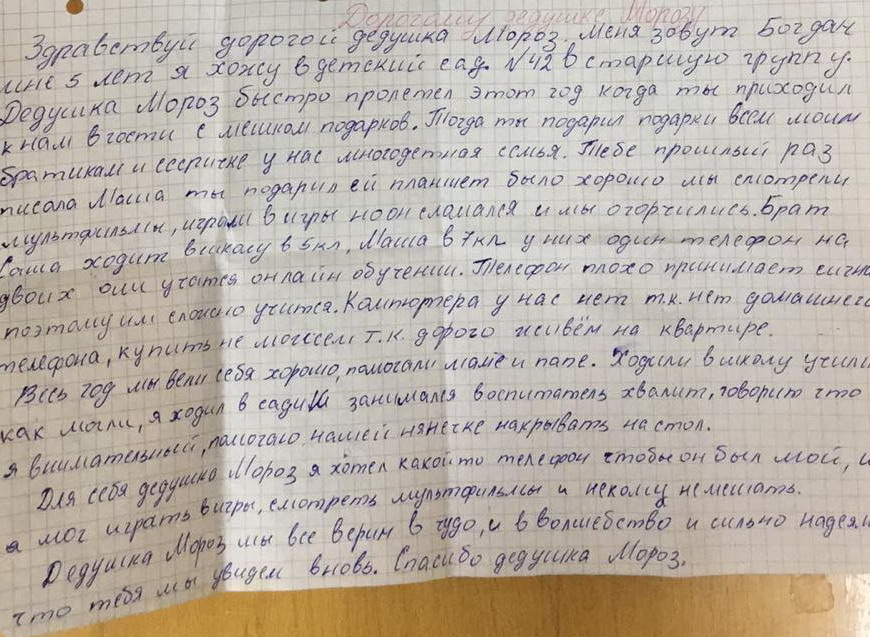 Дорогому дедушке Морозу
Здравствуй дорогой дедушка Мороз. Меня зовут Богдан
мне 5 лет я хожу в детский сад. N42 в старшую группу.
Дедушка Мороз быстро пролетел этот год когда ты приходил
к нам в гости с мешком подарков. Тогда ты подарил подарки всем моим
братикам и сестричке у нас многодетная семья. Тебе прошлый раз
писала Маша ты подарил ей планшет было хорошо мы смотрели
мультфильмы, играли в игры но он сламался и мы огорчились. Брат
Саша ходит в школу в 5кл, Маша в 7кл у них один телефон на
двоих они учатся онлайн обучении. Телефон плохо принимает сигна
поэтому им сложно учится. Компютера у нас нет т.к. нет домашнего
телефона, купить не можем т.к. дорого живём на квартире.
Весь год мы вели себя хорошо, помогали маме и папе. Ходили в школу учили
как могли, я ходил в садик занимался воспитатель хвалит, говорит что
я внимательный, помогаю нашей нянечке накрывать на стол.
Для себя дедушка Мороз я хотел какой то телефон чтобы он был мой, и
я мог играть в игры, смотреть мультфильмы и некому немешать.
Дедушка Мороз мы все верим в чудо, и в волшебство и сильно надеям
что тебя мы увидем вновь. Спасибо дедушка Мороз.